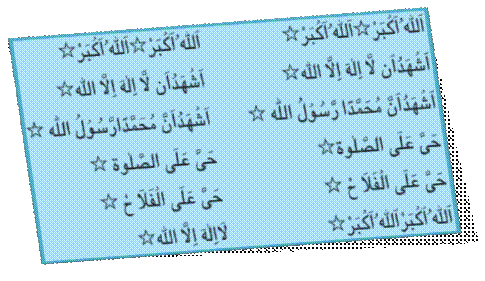 اَللّٰهُ اَكْبَرْ☆اَللّٰهُ اَكْبَرْ☆ اَللّٰهُ اَكْبَرْ☆اَللّٰهُ اَكْبَرْ☆
اَشْهَدُ اَن لَّا اِلٰهَ اِلَّا الله☆ اَشْهَدُ اَن لَّا اِلٰهَ اِلَّا الله☆
اَشْهَدُ اَنَّ مُحَمَّدًا رَّسُوَلُ الله ☆ اَشْهَدُ اَنَّ مُحَمَّدًا رَّسُوَلُ الله ☆
حَىَّ عَلَى الصَّلٰوة☆ حَىَّ عَلَى الصَّلٰوة ☆
حَىَّ عَلَى الْفَلَا حْ ☆ حَىَّ عَلَى الْفَلَا حْ ☆
اَللّٰهُ اَكْبَرْ اَللّٰهُ اَكْبَرْ☆ لَا اِلٰهَ اِلَّا الله☆